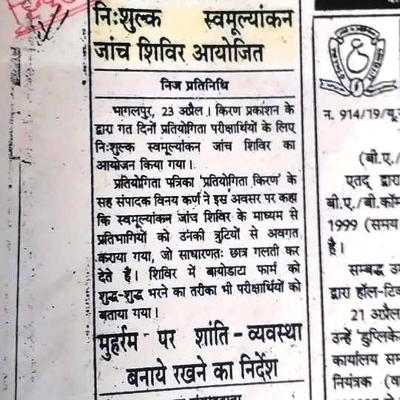 निःशुल्क स्वमूल्यांकन
जांच शिविर आयोजित
निज प्रतिनिधि
भागलपुर, 23 अप्रैल। किरण प्रकाशन के
द्वारा गत दिनों प्रतियोगिता परीक्षार्थियों के लिए
निःशुल्क स्वमूल्यांकन जांच शिविर का
आयोजन किया गया।
प्रतियोगिता पत्रिका 'प्रतियोगिता किरण' के
सह संपादक विनय कर्ण ने इस अवसर पर कहा
कि स्वमूल्यांकन जांच शिविर के माध्यम से
प्रतिभागियों को उनकी त्रुटियों से अवगत
कराया गया, जो साधारणतः छात्र गलती कर
देते हैं। शिविर में बायोडाटा फार्म को
शुद्ध-शुद्ध भरने का तरीका भी परीक्षार्थियों को
बताया गया।
मुहर्रम पर शांति-व्यवस्था
बनाये रखने का निर्देश
न. 914/19/यू.
(बी.ए./
एतद् द्वारा
बी.ए./बी.कॉम
1999 (समय
है।
सम्बद्ध
द्वारा हॉल-टि
21 अप्रैल
उन्हें 'डुप्लिके
कार्यालय सम
नियंत्रक